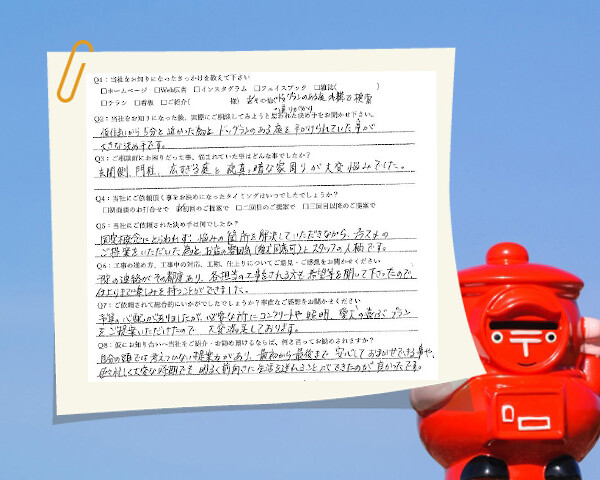 Q1：当社をお知りになったきっかけを教えて下さい
□ホームページ □Web広告 □インスタグラム □フェイスブック □雑誌( )
□チラシ □看板 □ご紹介( 様) ドッグランのある庭 で検索
Q2：当社をお知りになった後、実際にご相談してみようと思われた決め手をお聞かせ下さい。
から5分と近かった為と、ドッグランのある庭を手がけられていた事が
大きな決め手です。
Q3：ご相談前にお困りだった事、悩まれていた事はどんな事でしたか？
玄関側、門柱、広すぎる庭と 家周りが大変悩みでした。
Q4：当社にご依頼頂く事をお決めになったタイミングはいつでしたでしょうか？
□初面談のお打合せで 初回のご提案で □二回目のご提案で □三回目以降のご提案で
Q5：当社にご依頼された決め手は何でしたか？
固定概念にとらわれず、悩みの箇所を解決していただきながら、
ご提案をいただいた為と、お店の雰囲気 とスタッフの人柄です。
Q6：工事の進め方、工事中の対応、工期、仕上りについてご意見・ご感想をお聞かせください
の連絡がその都度あり、各担当の工事をされる方も希望等を聞いて下さったので、
仕上りまで楽しみを持つことができました。
Q7：ご依頼されて総合的にいかがでしたでしょうか？率直なご感想をお聞かせください
予算の心配がありましたが、必要な所にコンクリートや照明、愛犬の喜ぶプラン
をご提案いただけたので、大変満足しております。
Q8：仮にお知り合いへ当社をご紹介・お勧め頂けるならば、何と言ってお勧めされますか？
自分の頭では考えつかない提案力があり、最初から最後まで安心しておまかせできる事や、
大変な時期でも、明るく前向きに生活を送れることができたのが良かったです。